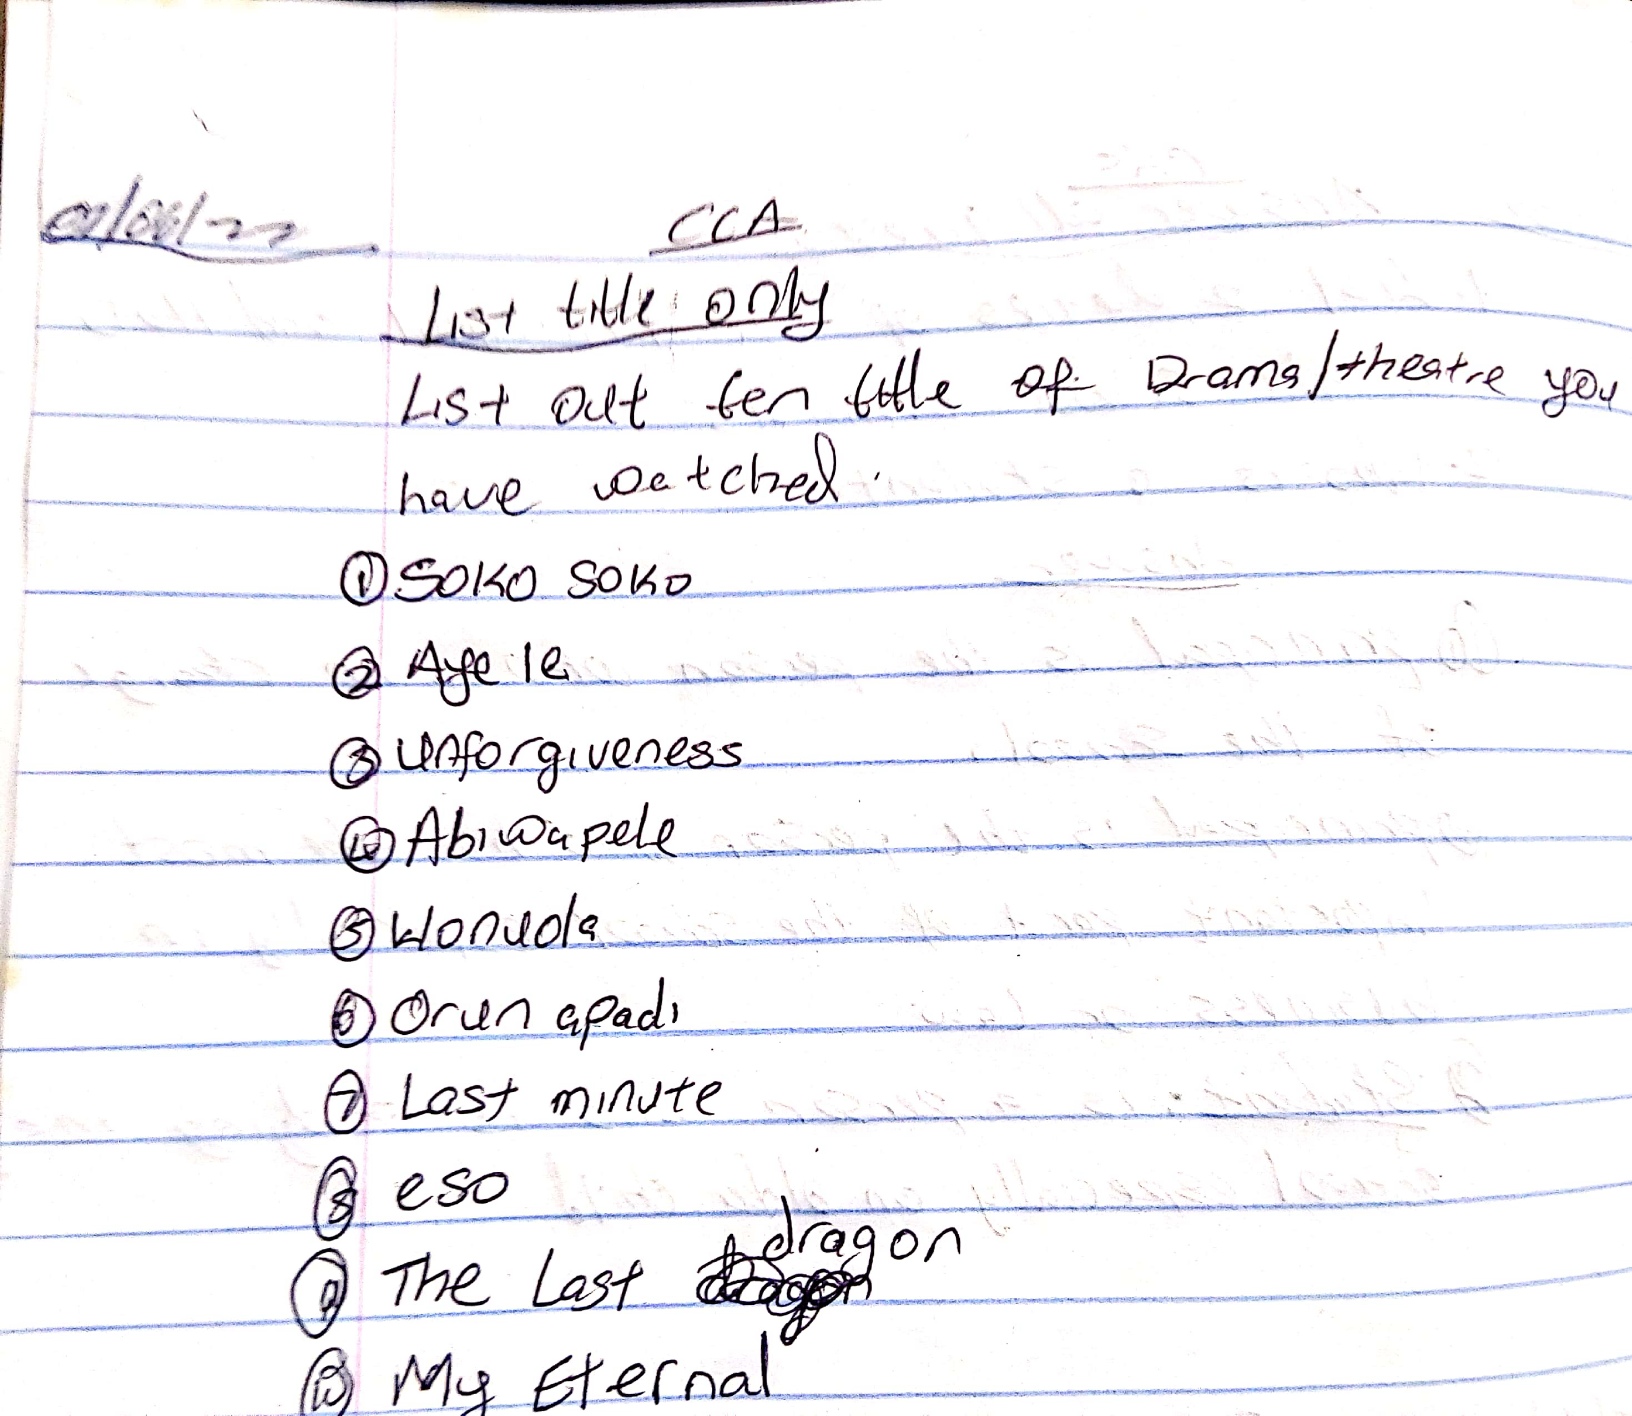 02/06/22
CCA
List title only
List out ten tittle of Drama/theatre you
have watched.
① SOKO SOKO
② Aye le
③ Unforgiveness
④ Abiwapele
⑤ Wonuola
⑥ Orun apadi
⑦ Last minute
⑧ eso
⑨ The Last dragon
⑩ My Eternal